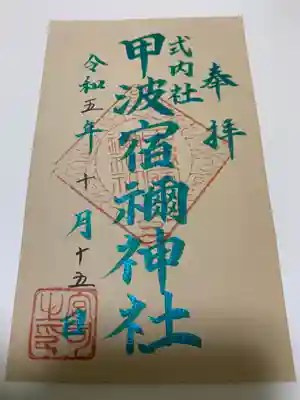 奉拝
式内社
甲波宿禰神社
令和五年十月十五日